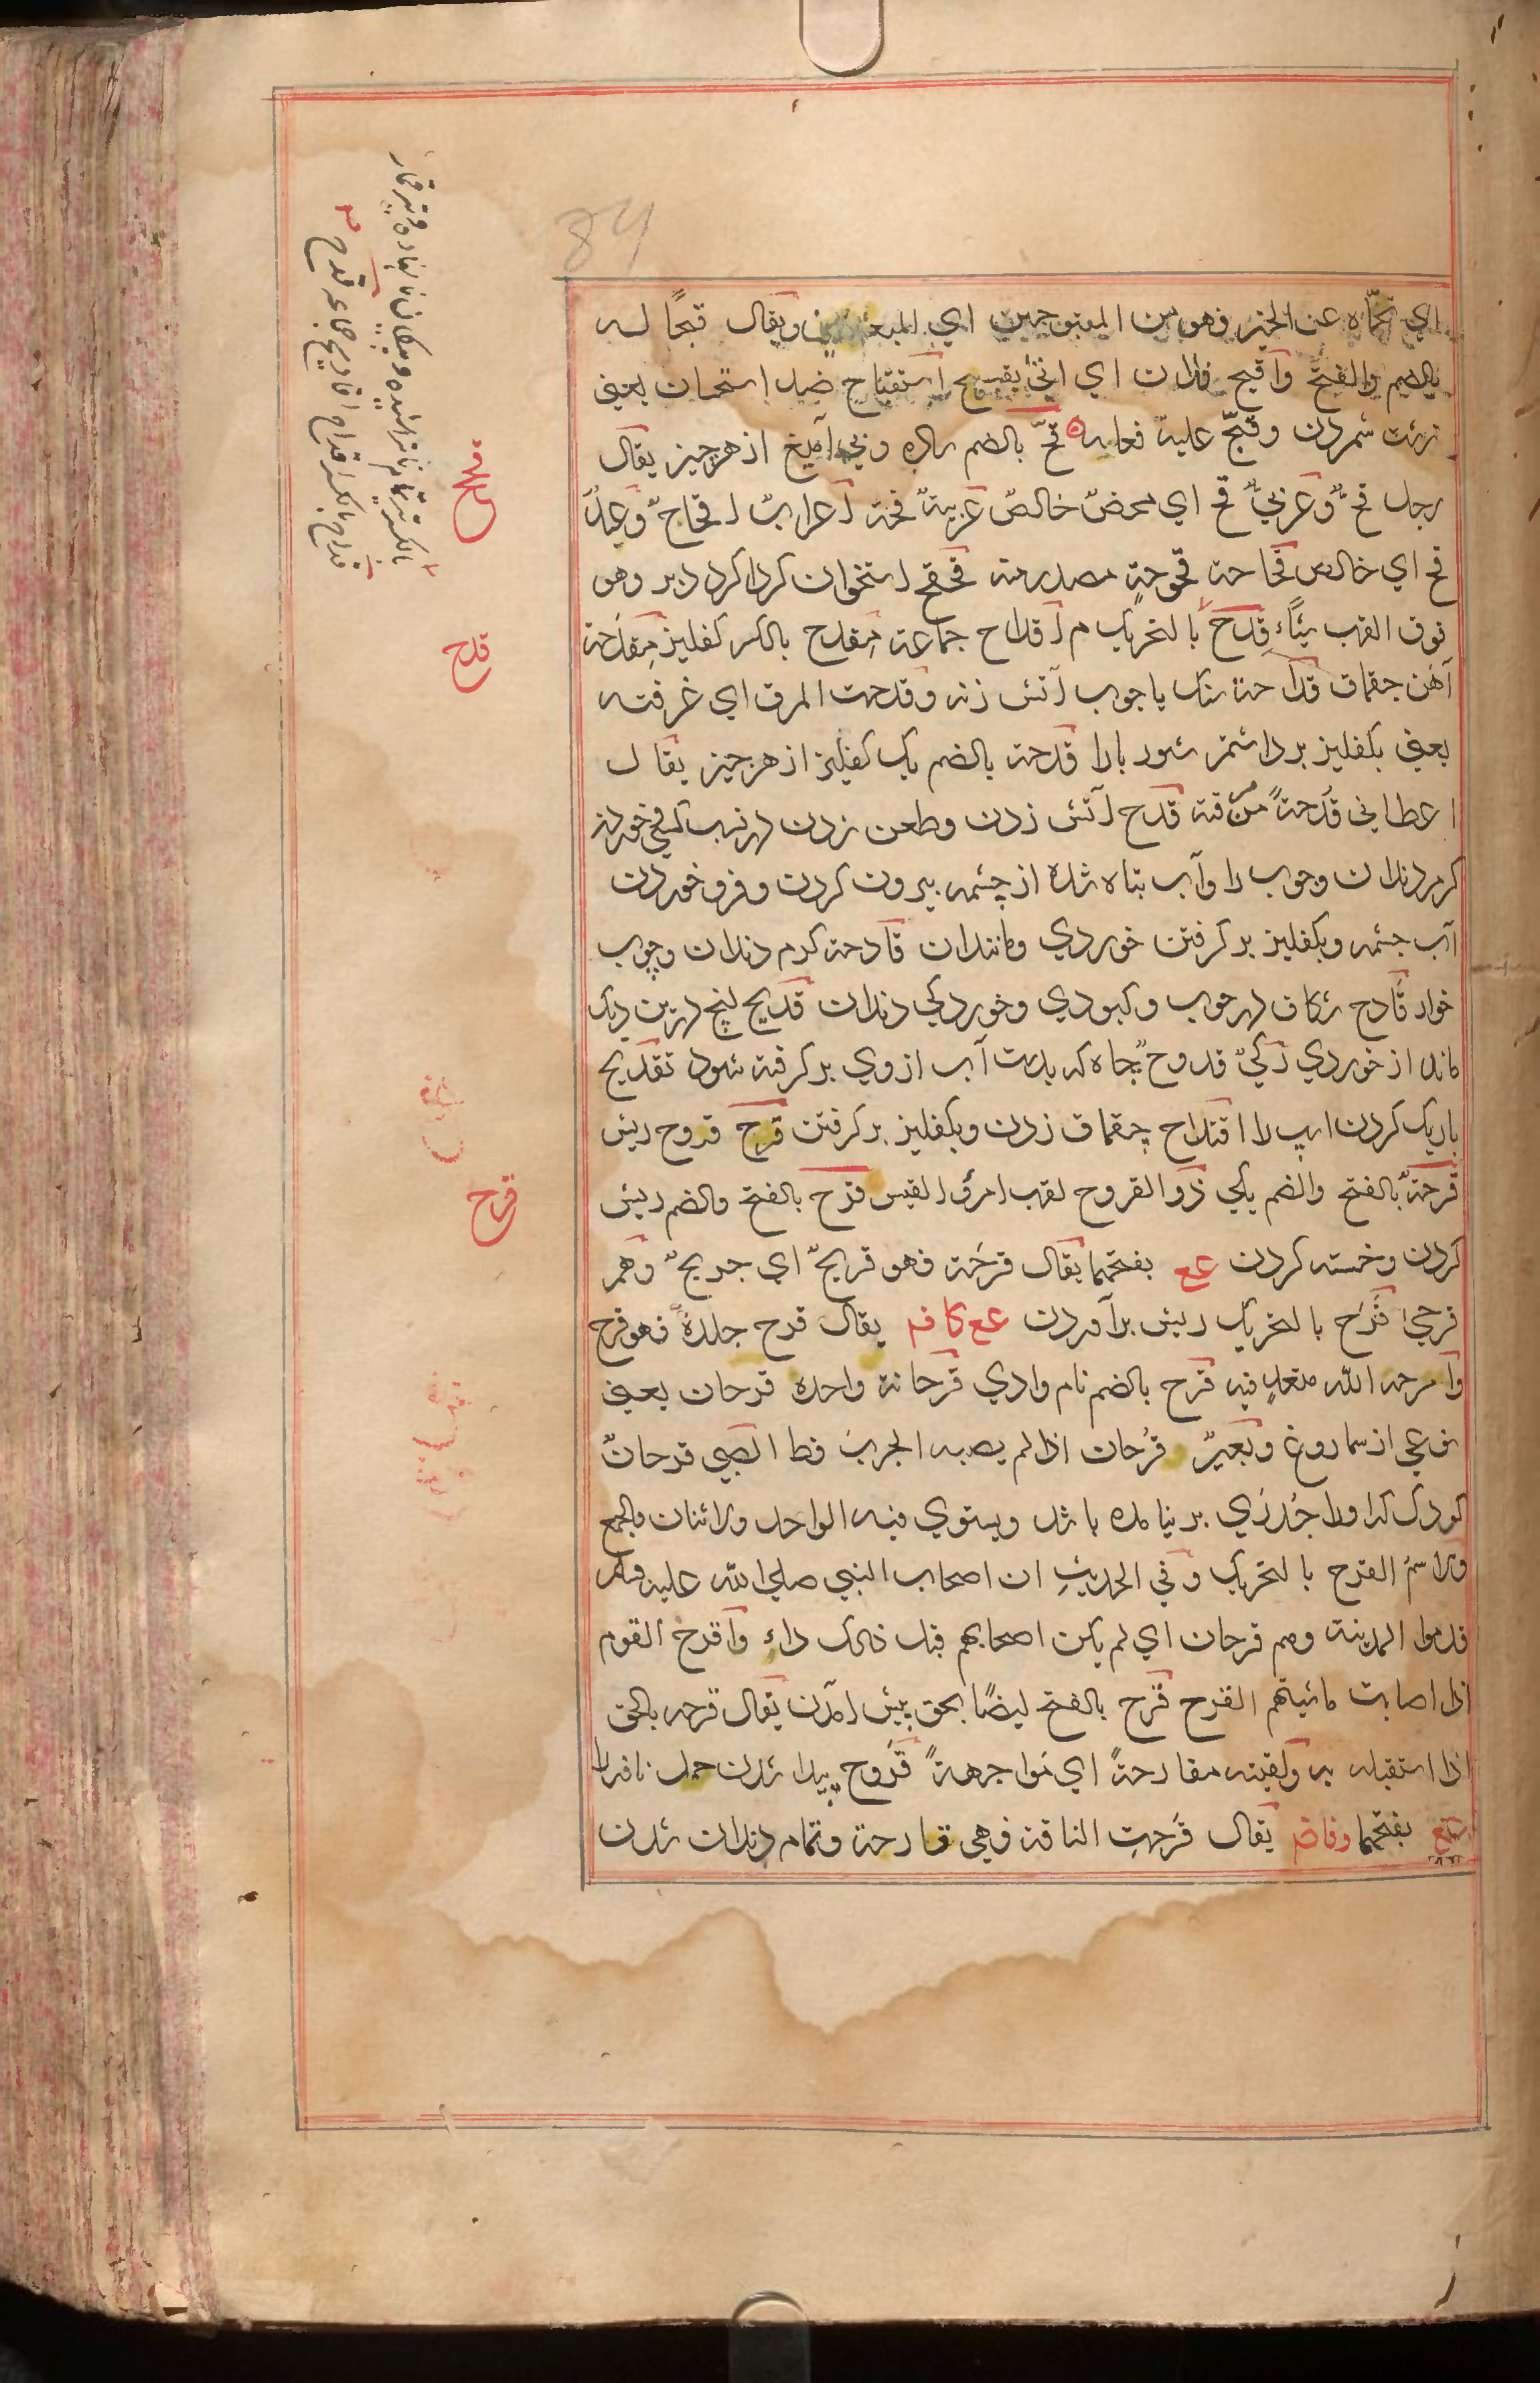 84
اي نحّاه عن الخير فهو من المقبوحين اي المبعدين ويقال قبحًا له
بالضم والفتح واقبح فلان اي اتی بقبيح استقباح ضد استحسان يعني
زشت شمردن وقبّح عليه فعله قحّ بالضم ساده وبي آميغ از هر چيز يقال
رجل قحٌ وعربيٌ قح اي محض خالصٌ عربيةٌ قحة اعرابٌ اقحاحٌ وعبدٌ
قح اي خالص قحاحة قحوحةٍ مصدر منه قحقح استخوان كرداكرد دبر وهو
فوق القب شيئًا قدح بالتحريك م اقداح جماعة مقدح بالكسر كفليز مقدحة
آهن چقماق قداحة سنك يا چوب آتش زنه وقدحت المرق اي غرفته
يعني بكفليز برداشتم شوربا را قدحة بالضم يك كفليز از هر چيز يقال
اعطاني قدحةً من مرقته قدح آتش زدن وطعن زدن در نسب كسي خوردن
كرم دندان وچوب را وآب تباه شده از چشمه بيرون كردن وفرو خوردن
آب چشمه وبكفليز بر كرفتن خوردي ومانند ان قادحة كرم دندان وچوب
خوار قادح شكاف در چوب وكبودي وخوردكي دندان قديح انچ در بن ديك
ماند از خوردي ركيٌ قدوحٌ چاه كه بدست آب از وي بر كرفته شود تقديح
باريك كردن اسپ را اقتداح چقماق زدن وبكفليز بر كرفتن قرح قروح ريش
قرحة بالفتح والضم يكي ذو القروح لقب امرؤ القيس قرح بالفتح والضم ريش
كردن وخسته كردن عع بفتحهما يقال قرحه فهو قريحٌ اي جريحٌ وهم
قرحى قرح بالتحريك ريش برآمدن عع كاف يقال قرح جلده فهو قرح
واقرحه الله متعد فيه قرح بالضم نام وادي قرحانة واحده قرحان يعني
نوعي از سماروغ وبعيرٌ قرحان اذا لم يصبه الجرب قط الصبي قرحانٌ
كودك كه او را جدري بر نيامده باشد ويستوي فيه الواحد والاثنان والجمع
والاسم القرح بالتحريك وفي الحديث ان اصحاب النبي صلي الله عليه وسلم
قدموا المدينة وهم قرحان اي لم يكن اصحابهم قبل ذلك داء واقرح القوم
اذا اصابت ماشيتهم القرح قرح بالفتح ايضًا بحق پيش آمدن يقال قرحه بالحق
اذا استقبله به ولقيته مقارحةً اي مواجهةً قروح پيدا شدن حمل ناقه را
بفتحهما يقال قرحت الناقة فهي قارحة وتمام دندان شدن
قحح
قدح
قرح
بالكسر تير تمام ناتراشيده وپيكان نانهاده وتير قمار
قداح بالكسر اقداح اقاديح جماعه قدح